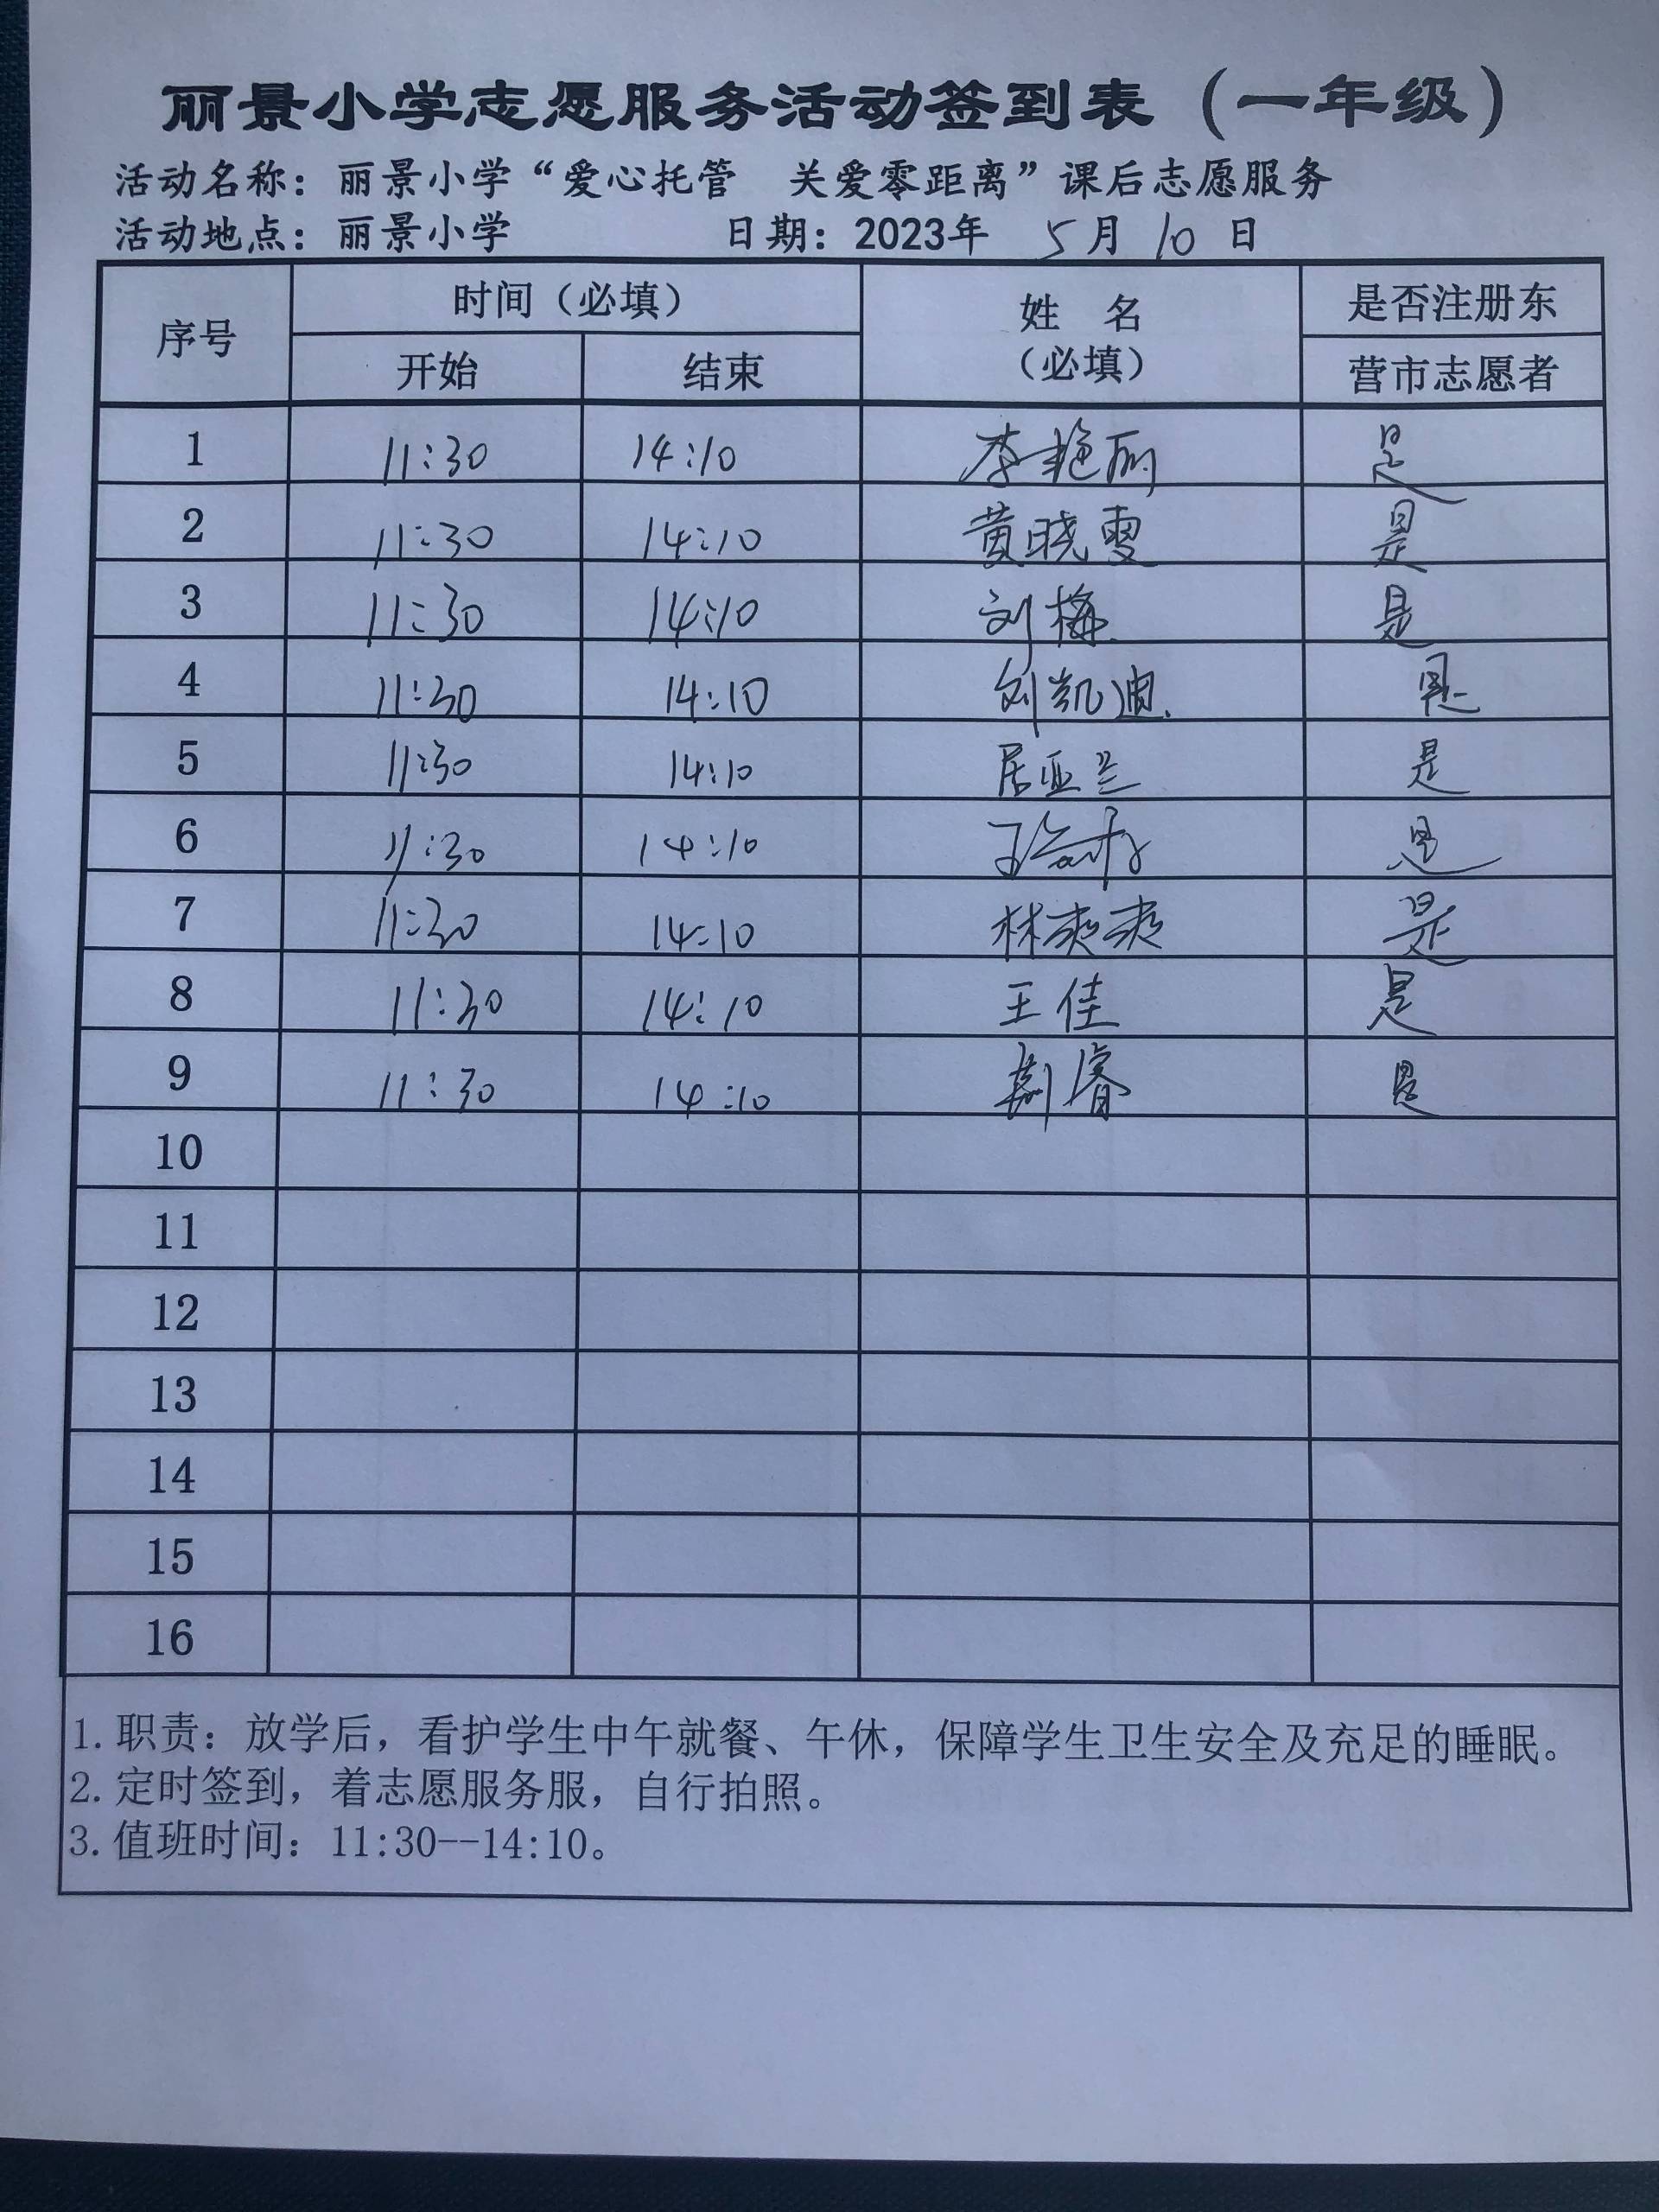 丽景小学志愿服务活动签到表（一年级）
活动名称：丽景小学“爱心托管 关爱零距离”课后志愿服务
活动地点：丽景小学 日期：2023年 5月 10日
序号 时间（必填） 姓 名（必填） 是否注册东营市志愿者
开始 结束
1 11:30 14:10 李艳丽 是
2 11:30 14:10 黄晓雯 是
3 11:30 14:10 刘梅 是
4 11:30 14:10 刘凯迪 是
5 11:30 14:10 居亚兰 是
6 11:30 14:10 是
7 11:30 14:10 林爽爽 是
8 11:30 14:10 王佳 是
9 11:30 14:10 荆睿 是
10
11
12
13
14
15
16
1.职责：放学后，看护学生中午就餐、午休，保障学生卫生安全及充足的睡眠。
2.定时签到，着志愿服务服，自行拍照。
3.值班时间：11:30--14:10。